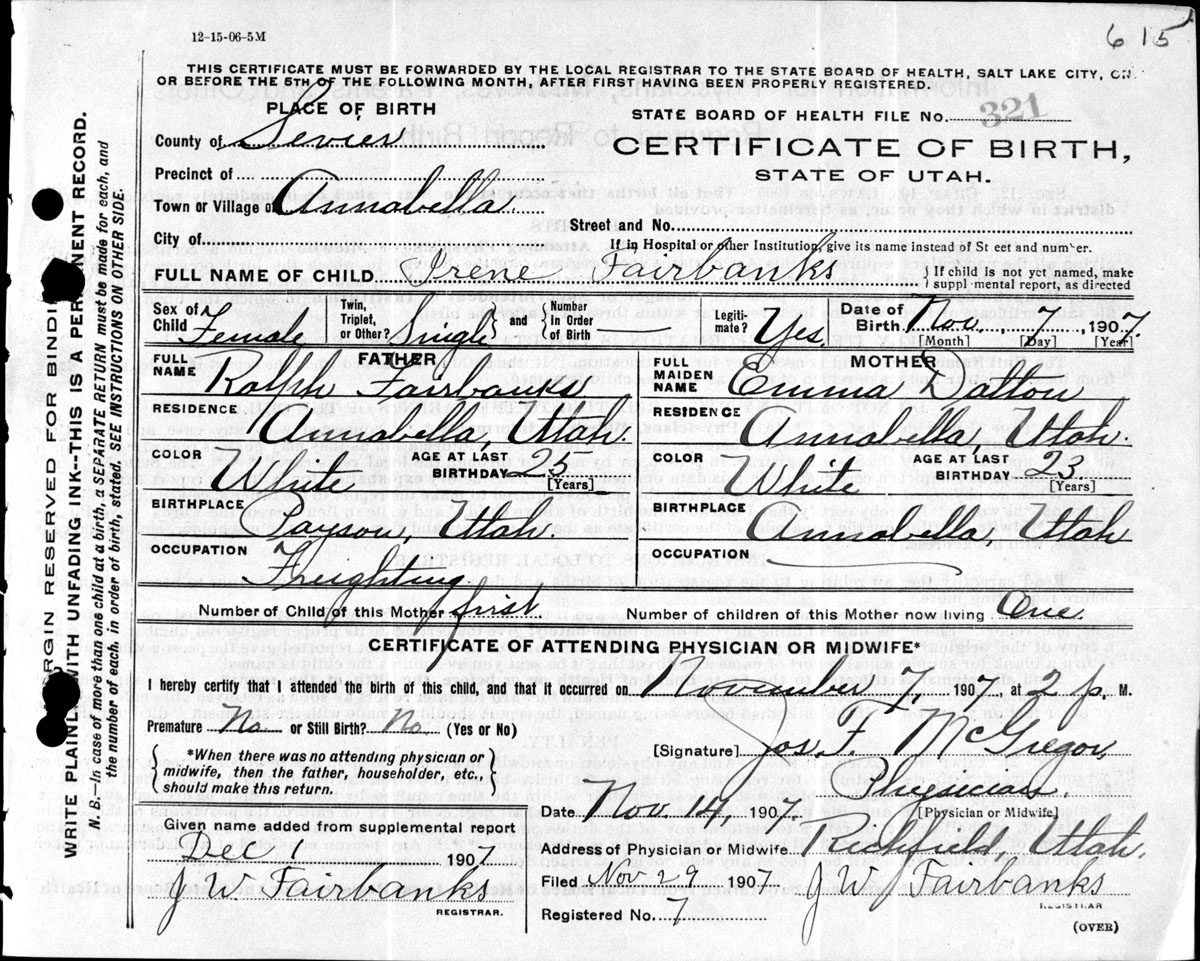 12-15-06-5M
615
THIS CERTIFICATE MUST BE FORWARDED BY THE LOCAL REGISTRAR TO THE STATE BOARD OF HEALTH, SALT LAKE CITY, ON
OR BEFORE THE 5TH OF THE FOLLOWING MONTH, AFTER FIRST HAVING BEEN PROPERLY REGISTERED.
PLACE OF BIRTH
STATE BOARD OF HEALTH FILE No. 321
County of Sevier
CERTIFICATE OF BIRTH,
STATE OF UTAH.
Precinct of
Town or Village of Annabella
Street and No.
City of
If in Hospital or other Institution, give its name instead of St eet and number.
FULL NAME OF CHILD Irene Fairbanks { If child is not yet named, make suppl mental report, as directed
Sex of Child Female Twin, Triplet, or Other? Single } and { Number in Order of Birth Legiti- mate? Yes Date of Birth Nov, 7, 1907
[Month] [Day] [Year]
FATHER
FULL NAME Ralph Fairbanks
MOTHER
FULL MAIDEN NAME Emma Dalton
RESIDENCE Annabella, Utah.
RESIDENCE Annabella, Utah.
COLOR White AGE AT LAST BIRTHDAY 25 [Years]
COLOR White AGE AT LAST BIRTHDAY 23 [Years]
BIRTHPLACE Payson, Utah.
BIRTHPLACE Annabella, Utah
OCCUPATION Freighting
OCCUPATION
Number of Child of this Mother first
Number of children of this Mother now living One
CERTIFICATE OF ATTENDING PHYSICIAN OR MIDWIFE*
I hereby certify that I attended the birth of this child, and that it occurred on November 7, 1907, at 2 p. M.
Premature No or Still Birth? No (Yes or No)
[Signature] Jos. F. McGregor,
Physician.
[Physician or Midwife]
{ *When there was no attending physician or
midwife, then the father, householder, etc.,
should make this return. }
Date Nov. 14, 1907.
Given name added from supplemental report
Dec 1 1907
J W Fairbanks
REGISTRAR.
Address of Physician or Midwife Richfield Utah.
Filed Nov 29 1907 J W Fairbanks
REGISTRAR
Registered No. 7
(OVER)
MARGIN RESERVED FOR BINDING
WRITE PLAINLY WITH UNFADING INK--THIS IS A PERMANENT RECORD.
N. B.—In case of more than one child at a birth, a SEPARATE RETURN must be made for each, and
the number of each, in order of birth, stated. SEE INSTRUCTIONS ON OTHER SIDE.